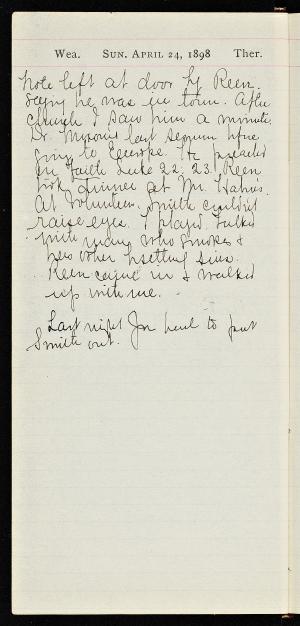 Wea. SUN. APRIL 24, 1898 Ther.
Note left at door by Reen.
saying he was in town. After
Church I saw him a minute
Dr. Myron's last sermon before
going to Europe. He preached
on Faith Luke 22:23. Reen
took dinner at Mr.
At Volunteers Smith couldn't
raise eyes. I played. Talked
with many who smokes &
has other besetting sins.
Reen came in & walked
up with me.
Last night Jn had to put
Smith out.